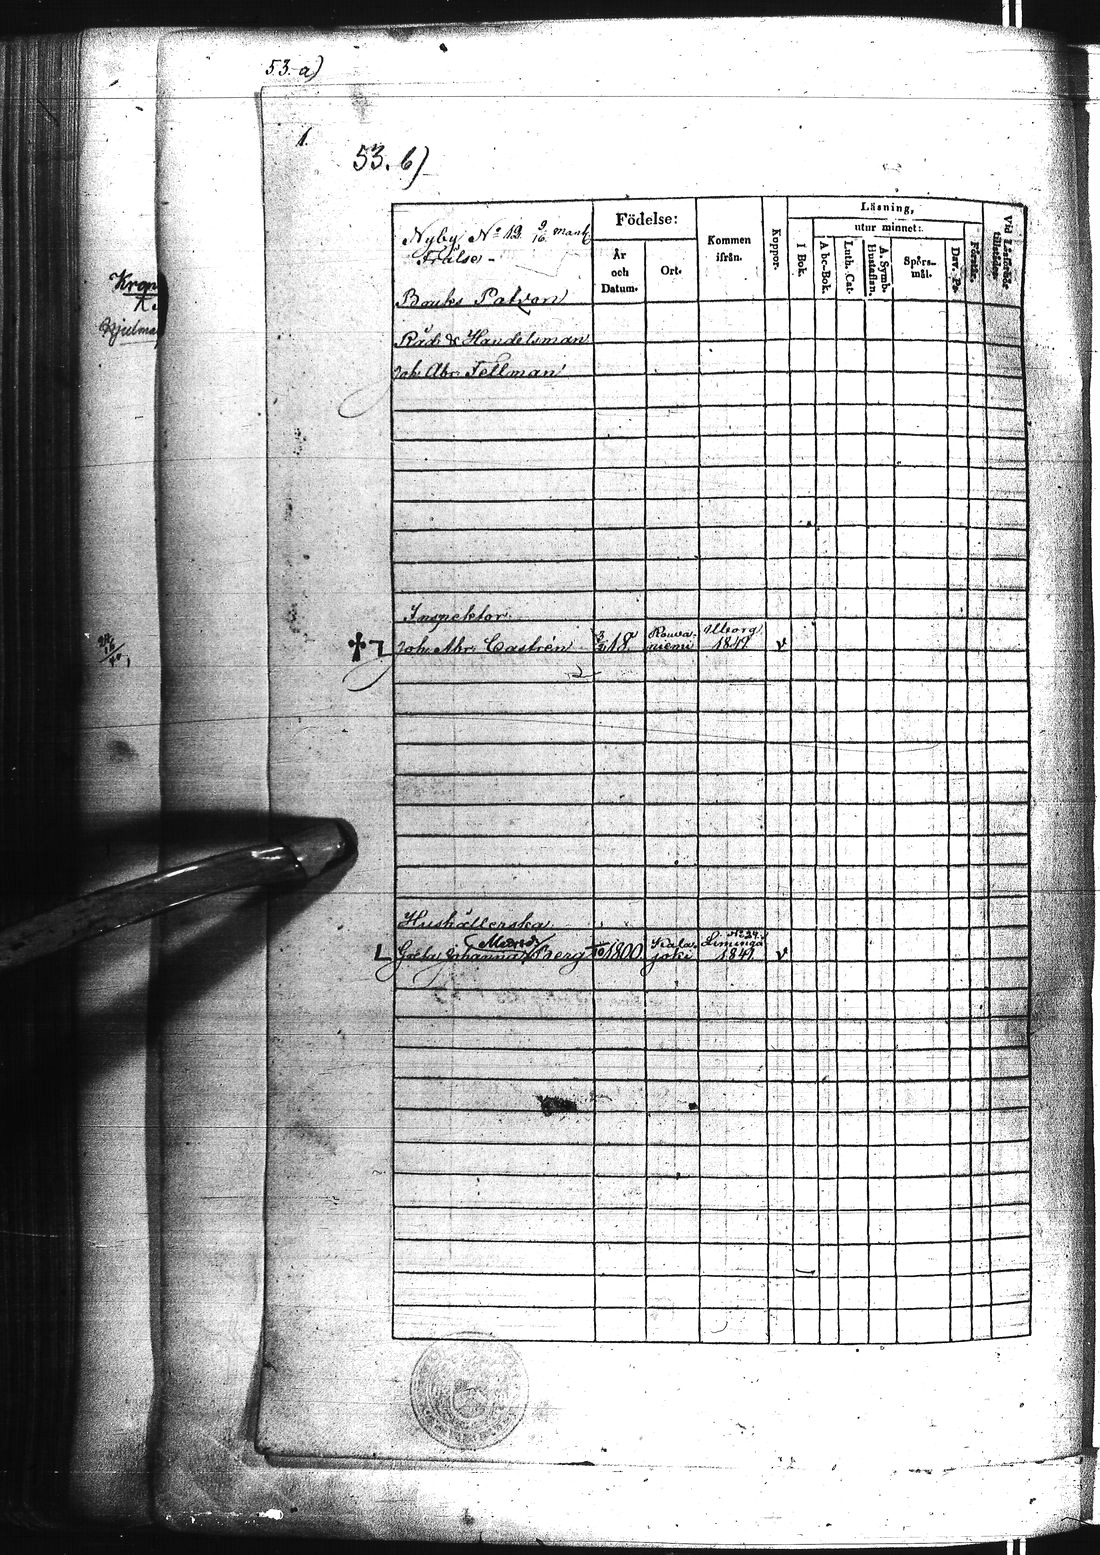 53. a)
1.
53. b)
Kron
Hjelma
Nyby No 13. 9/16 mantl
Frälse-
Födelse:
År
och
Datum.
Ort.
Kommen
ifrån.
Koppor.
Läsning,
utur minnet:
I Bok.
A b c-Bok.
Luth. Cat.
A. Symb.
Hustaflan.
Spörs-
mål.
Dav. Ps.
Försök.
Vid Läsförhör
tillstädes.
Bruks Patron
Råd. & Handelsman
Joh. Abr. Fellman
Inspektor
Joh. Abr. Castrén 18 Rova- niemi Uleorg 1841. v
Hushållerska
Johanna Berg 1800 Kala- joki Limingo 1841. v